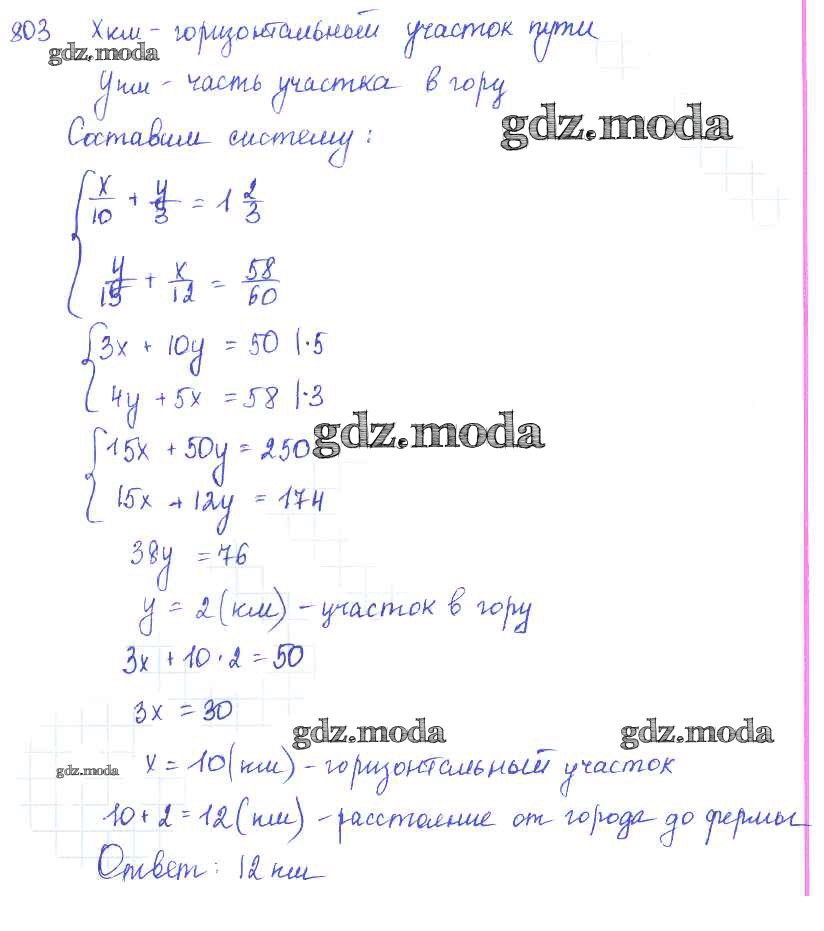 803 Xкм - горизонтальный участок пути
gdz.moda
Yкм - часть участка в гору
gdz.moda
Составим систему:
x/10 + y/3 = 1 2/3
y/15 + x/12 = 58/60
3x + 10y = 50 |·5
4y + 5x = 58 |·3
gdz.moda
15x + 50y = 250
15x + 12y = 174
38y = 76
y = 2 (км) - участок в гору
3x + 10·2 = 50
3x = 30
gdz.moda gdz.moda
gdz.moda x = 10 (км) - горизонтальный участок
10 + 2 = 12 (км) - расстояние от города до фермы
Ответ: 12 км